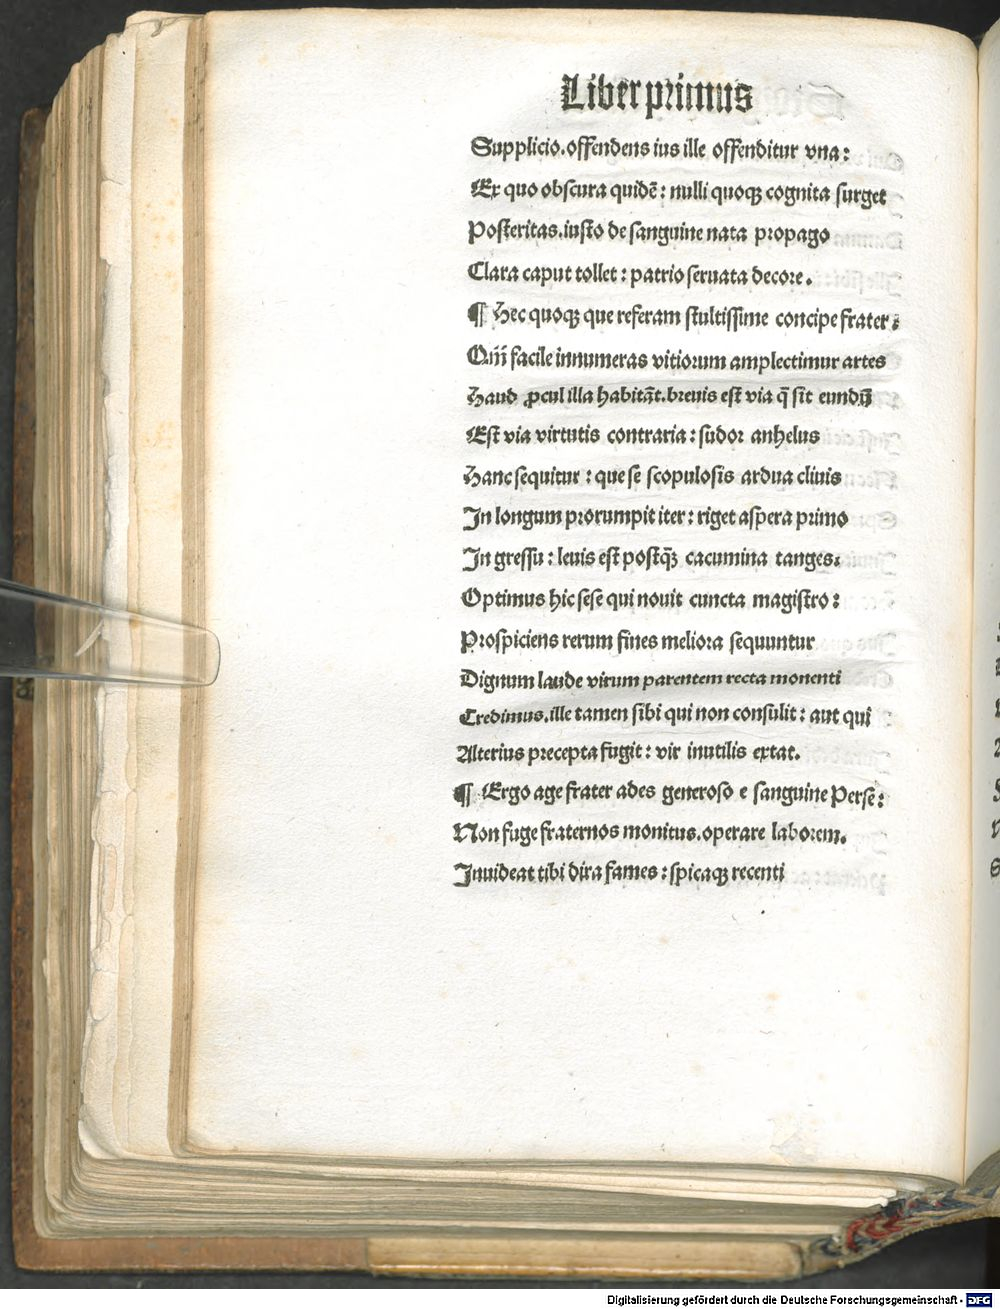 Liber primus
Supplicio.offendens ius ille offenditur vna:
Ex quo obscura quidē: nulli quoqꝫ cognita surget
Posteritas.iusto de sanguine nata propago
Clara caput tollet: patrio seruata decore.
¶ Hec quoqꝫ que referam stultissime concipe frater:
Qm̄ facile innumeras vitiorum amplectimur artes
Haud ꝓcul illa habitāt.breuis est via q̄ sit eundū
Est via virtutis contraria: sudor anhelus
Hanc sequitur: que se scopulosis ardua cliuis
In longum prorumpit iter: riget aspera primo
In gressu: leuis est postqꝫ̄ cacumina tanges.
Optimus hic sese qui nouit cuncta magistro:
Prospiciens rerum fines meliora sequuntur
Dignum laude virum parentem recta monenti
Credimus.ille tamen sibi qui non consulit: aut qui
Alterius precepta fugit: vir inutilis extat.
¶ Ergo age frater ades generoso e sanguine Perse:
Non fuge fraternos monitus.operare laborem.
Inuideat tibi dira fames: spicaqꝫ recenti
Digitalisierung gefördert durch die Deutsche Forschungsgemeinschaft - DFG